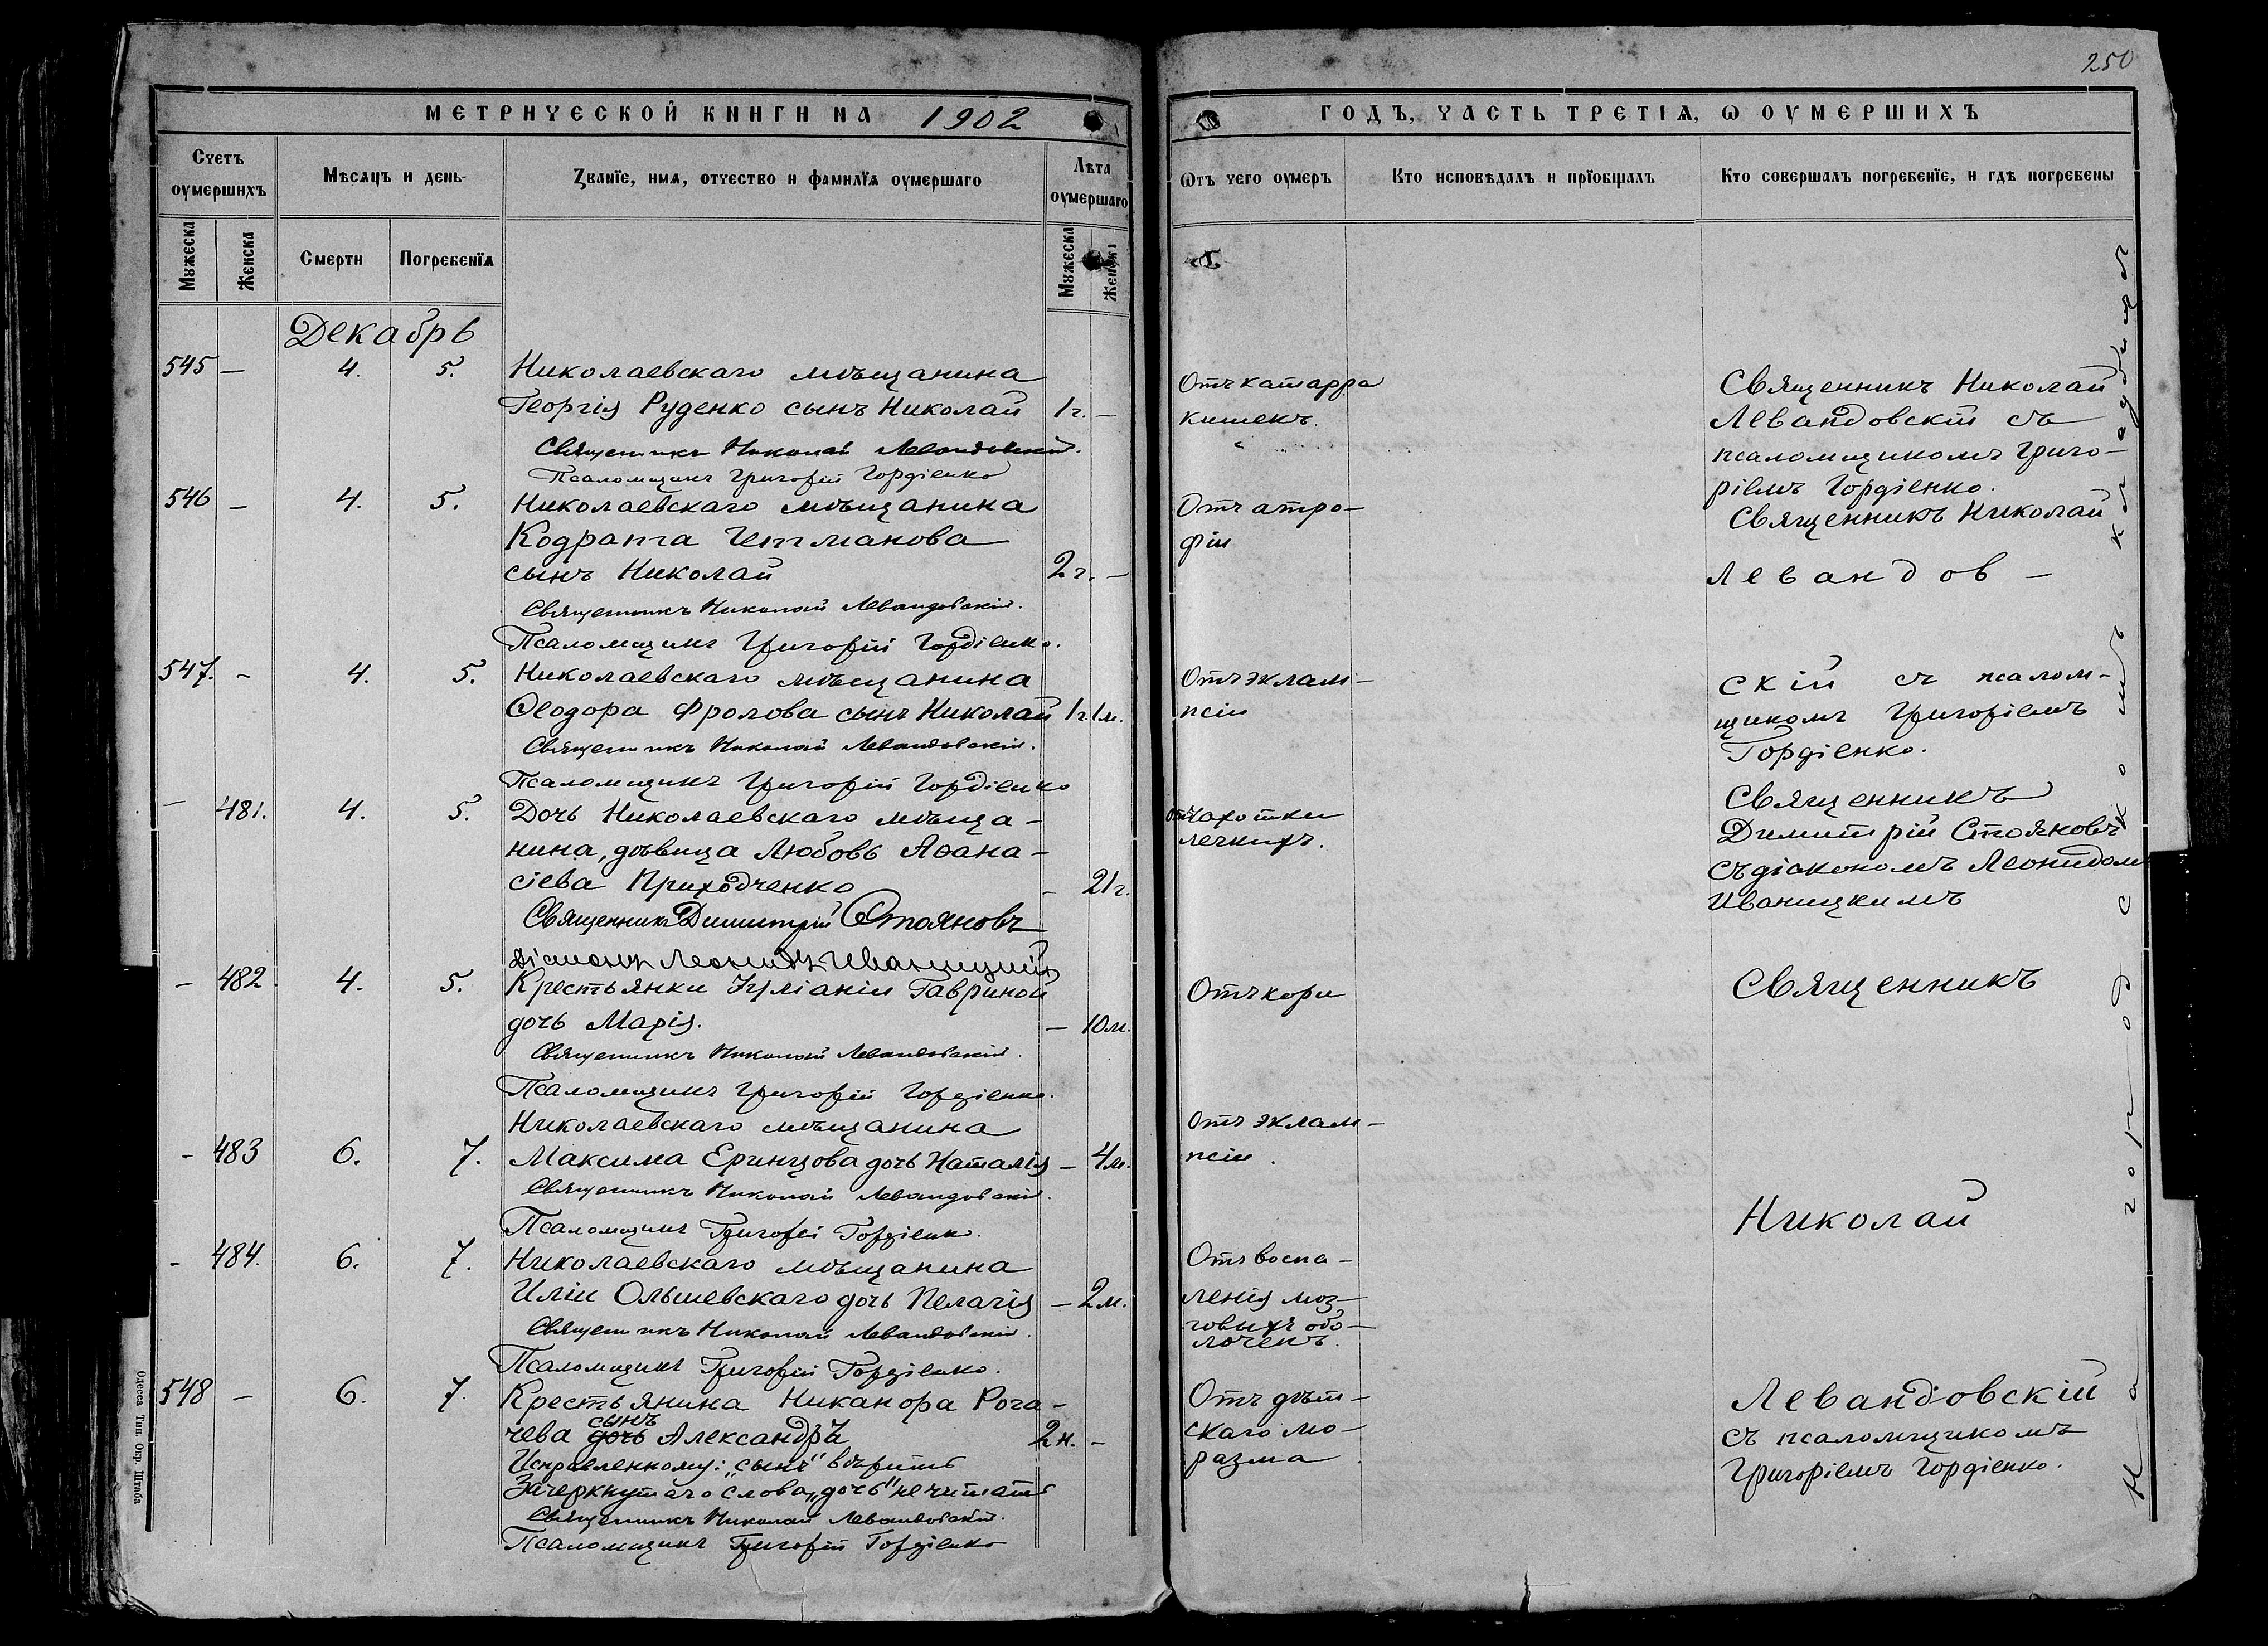 250
МЕТРИЧЕСКОЙ КНИГИ НА 1902
ГОДЪ, ЧАСТЬ ТРЕТІѦ, Ѡ ОУМЕРШИХЪ
Счетъ оумершихъ
Мѣсяцъ и день
Званїе, имѧ, отчество и фамилїѧ оумершаго
Лѣта оумершаго
Ѿтъ чего оумеръ
Кто исповѣдалъ и прїобщалъ
Кто совершалъ погребенїе, и гдѣ погребены
Мꙋжеска
Женска
Смерти
Погребенїѧ
Мꙋжеска
Женска
Декабрь
545 — 4. 5. Николаевскаго мѣщанина
Георгія Руденко сынъ Николай 1 г. —
Священникъ Николай Левандовскій.
Псаломщикъ Григорій Гордіенко
Отъ катарра
кишекъ.
Священникъ Николай
Левандовскій съ
псаломщикомъ Григо-
ріемъ Гордіенко.
546 — 4. 5. Николаевскаго мѣщанина
Кодрата Гетманова
сынъ Николай 2 г. —
Священникъ Николай Левандовскій.
Псаломщикъ Григорій Гордіенко.
Отъ атро-
фіи
Священникъ Николай
Левандов-
547. - 4. 5. Николаевскаго мѣщанина
Ѳеодора Фролова сынъ Николай 1 г. 1 м.
Священникъ Николай Левандовскій.
Псаломщикъ Григорій Гордіенко
Отъ эклам-
псіи
скій съ псалом-
щикомъ Григоріемъ
Гордіенко.
— 481. 4. 5. Дочь Николаевскаго мѣща-
нина, дѣвица Любовь Аѳана-
сіева Приходченко — 21 г.
Священникъ Димитрій Стояновъ
Діаконъ Леонидъ Иваницкій
Отъ чахотки
легкихъ.
Священникъ
Димитрій Стояновъ
съ діакономъ Леонидомъ
Иваницкимъ
— 482. 4. 5. Крестьянки Іуліаніи Гавриной
дочь Марія. — 10 м.
Священникъ Николай Левандовскій.
Псаломщикъ Григорій Гордіенко.
Отъ кори
Священникъ
- 483 6. 7. Николаевскаго мѣщанина
Максима Еринцова дочь Наталія — 4 м.
Священникъ Николай Левандовскій.
Псаломщикъ Григорій Гордіенко.
Отъ эклам-
псіи.
Николай
- 484. 6. 7. Николаевскаго мѣщанина
Иліи Ольшевскаго дочь Пелагія — 2 м.
Священникъ Николай Левандовскій.
Псаломщикъ Григорій Гордіенко.
Отъ воспа-
ленія моз-
говыхъ обо-
лочекъ.
548 — 6. 7. Крестьянина Никанора Рога-
сынъ
чева дочь Александръ 2 н. -
Исправленному: „сынъ" вѣрить
Зачеркнутаго слова „дочь" не читать
Священникъ Николай Левандовскій.
Псаломщикъ Григорій Гордіенко
Отъ дѣт-
скаго мо-
разма
Левандовскій
съ псаломщикомъ
Григоріемъ Гордіенко.
На городскомъ кладбищѣ
Одесса Тип. Окр. Штаба